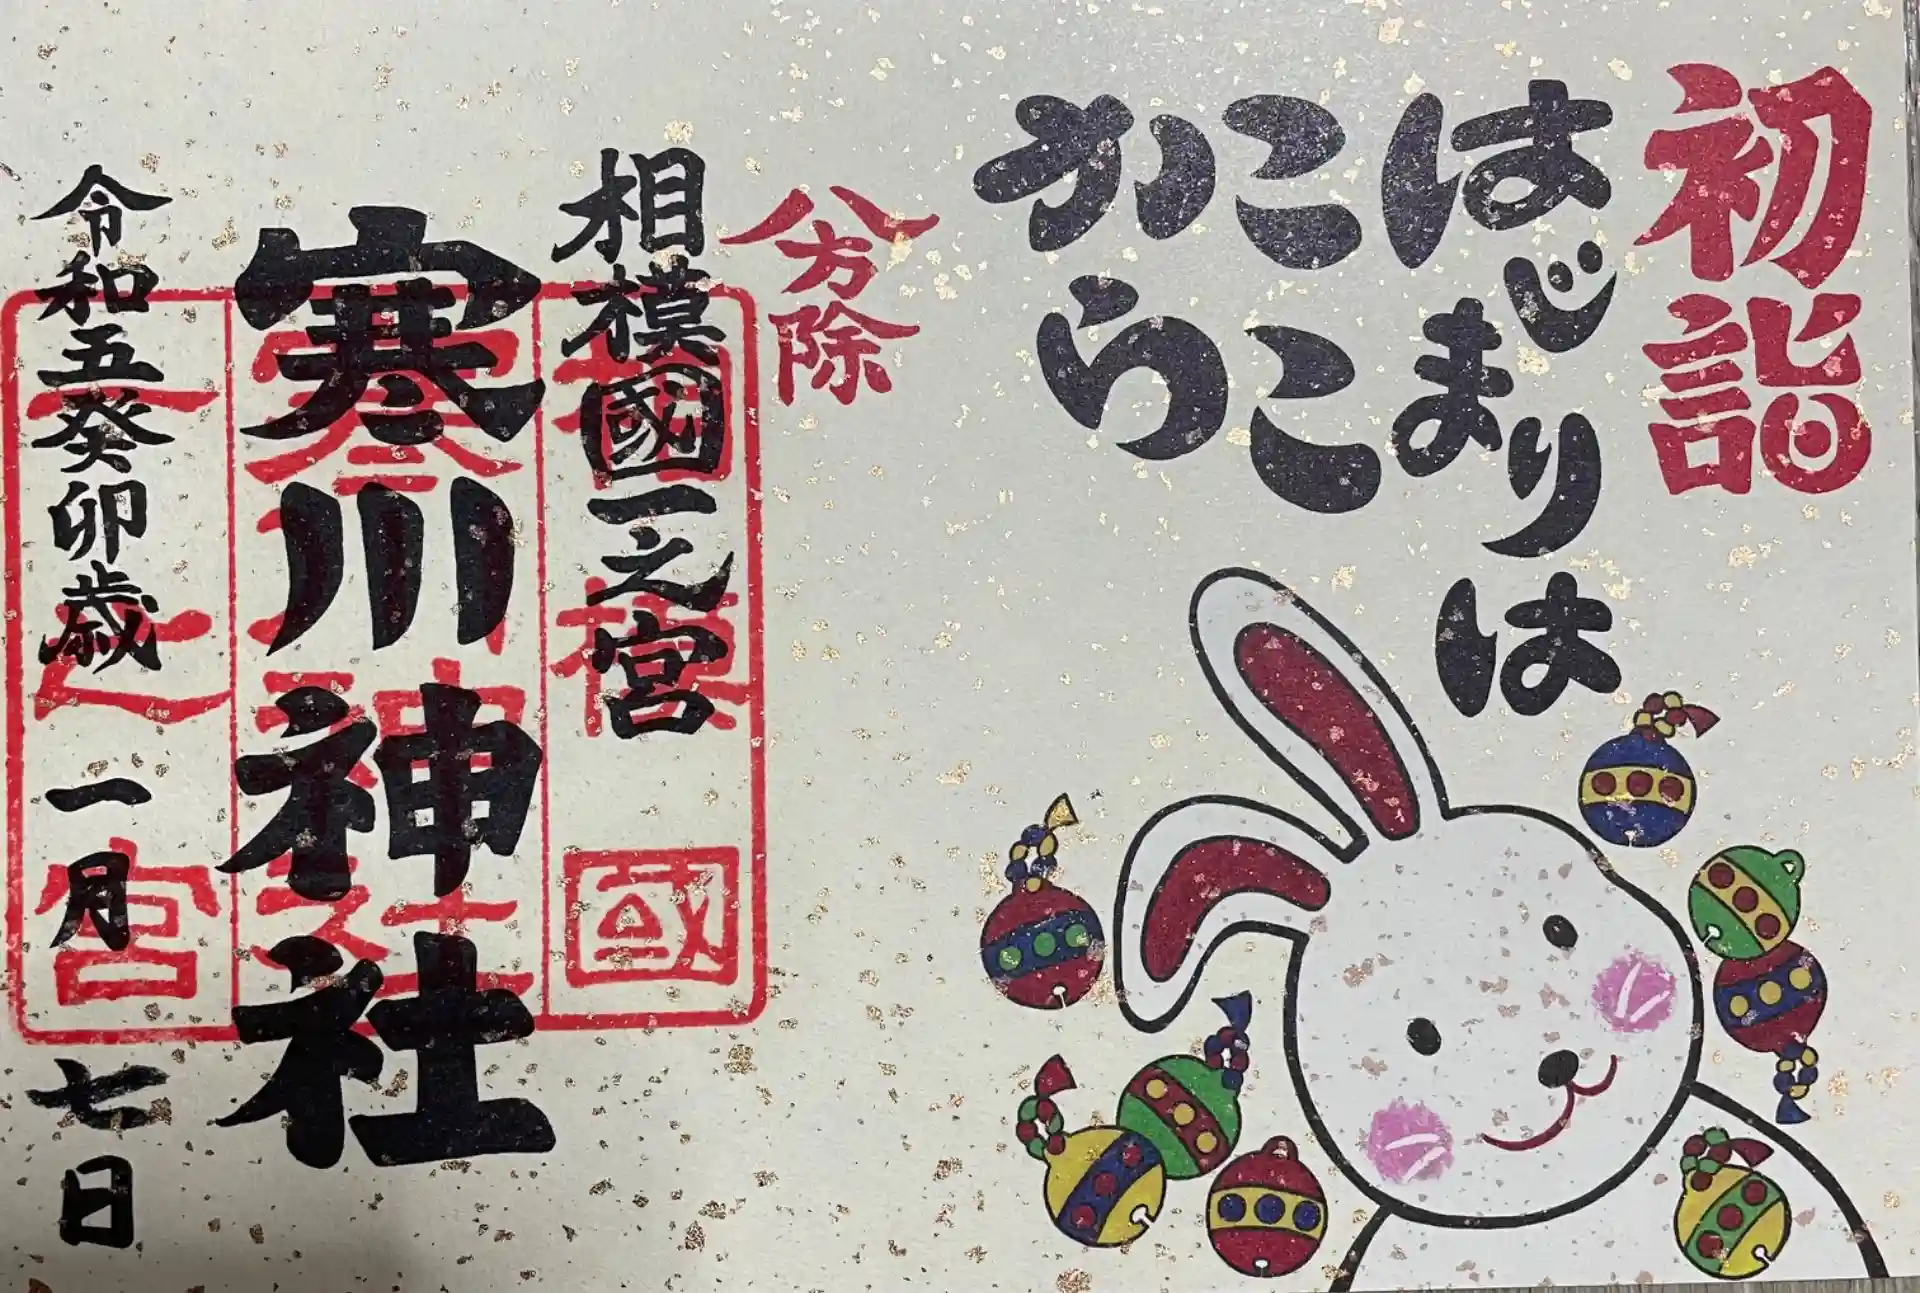 初詣
はじまりは
ここ
から
八方除
相模國一之宮
寒川神社
令和五癸卯歳一月七日
相模國
寒川神社
一之宮